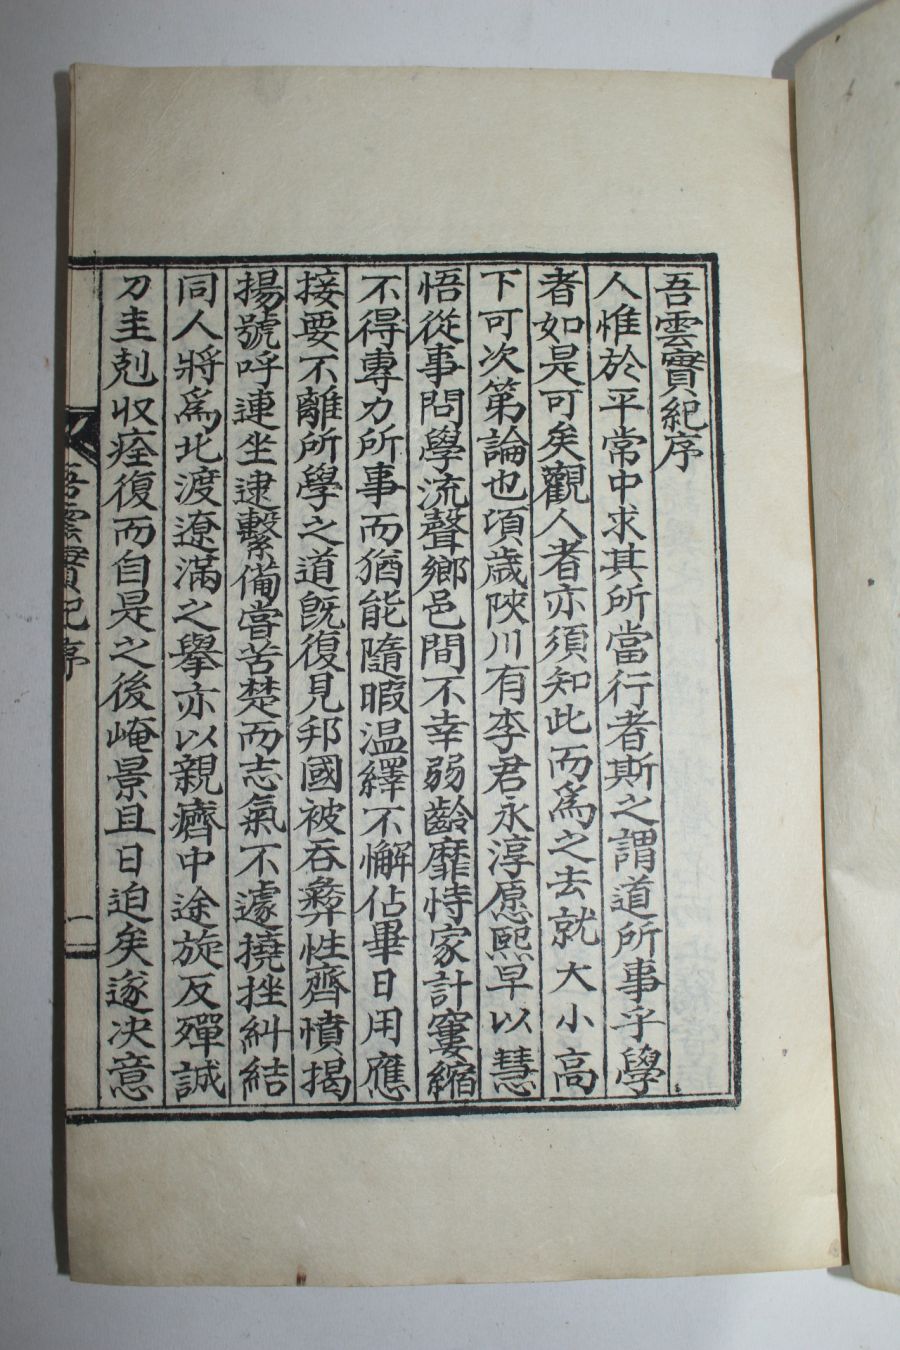 吾雲實紀序
人惟於平常中求其所當行者斯之謂道所事乎學
者如是可矣觀人者亦須知此而爲之去就大小高
下可次第論也頃歲陜川有李君永淳愿熙早以慧
悟從事問學流聲鄕邑間不幸弱齡靡恃家計窶縮
不得專力所事而猶能隨暇温繹不懈佔畢日用應
接要不離所學之道旣復見邦國被吞彜性齊憤揭
揚號呼連坐逮繫備嘗苦楚而志氣不遽撓挫糾結
同人將爲北渡遼滿之擧亦以親癠中途旋反殫誠
刀圭剋収痊復而自是之後崦景且日迫矣遂决意
吾雲實紀序
一